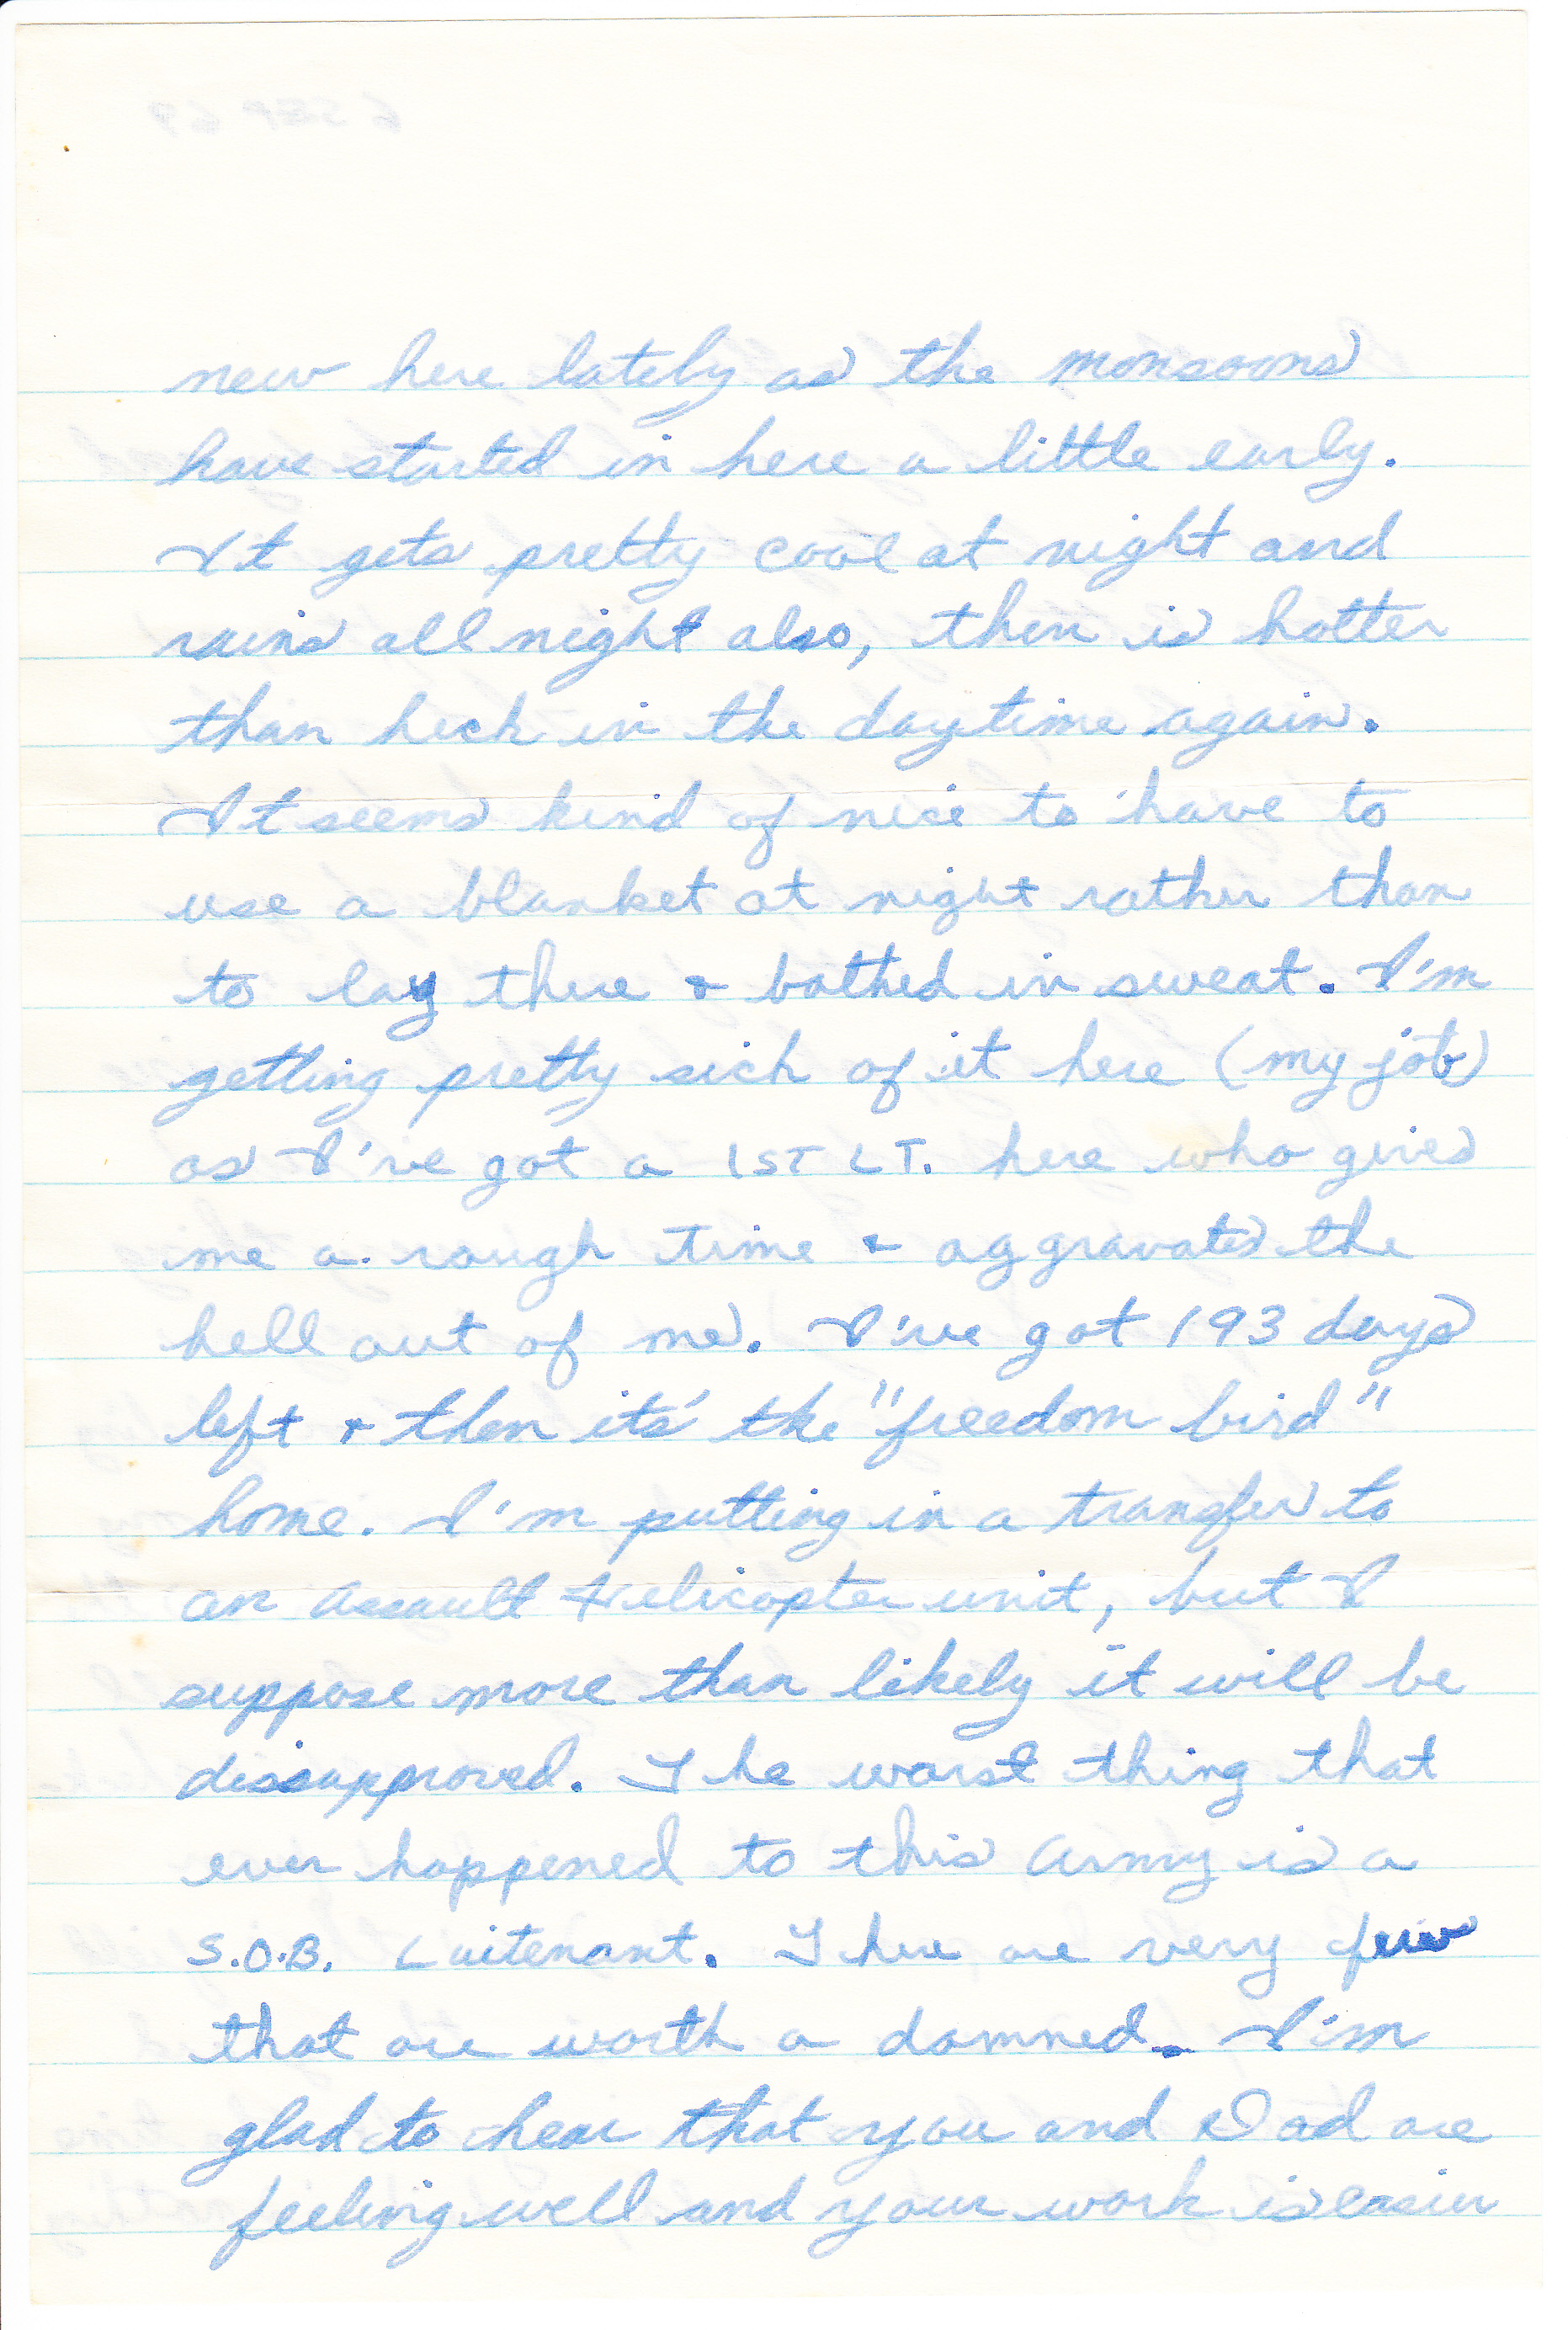 6 SEP 69
new here lately as the monsoons
have started in here a little early.
It gets pretty cool at night and
rains all night also, then is hotter
than heck in the daytime again.
It seems kind of nice to have to
use a blanket at night rather than
to lay there & bathed in sweat. I'm
getting pretty sick of it here (my job)
as I've got a 1ST LT. here who gives
me a rough time & aggravates the
hell out of me. I've got 193 days
left & then its' the "freedom bird"
home. I'm putting in a transfer to
an Assault Helicopter unit, but I
suppose more than likely it will be
dissapproved. The worst thing that
ever happened to this Army is a
S.O.B. Luitenant. There are very few
that are worth a damned. I'm
glad to hear that you and Dad are
feeling well and your work is easier